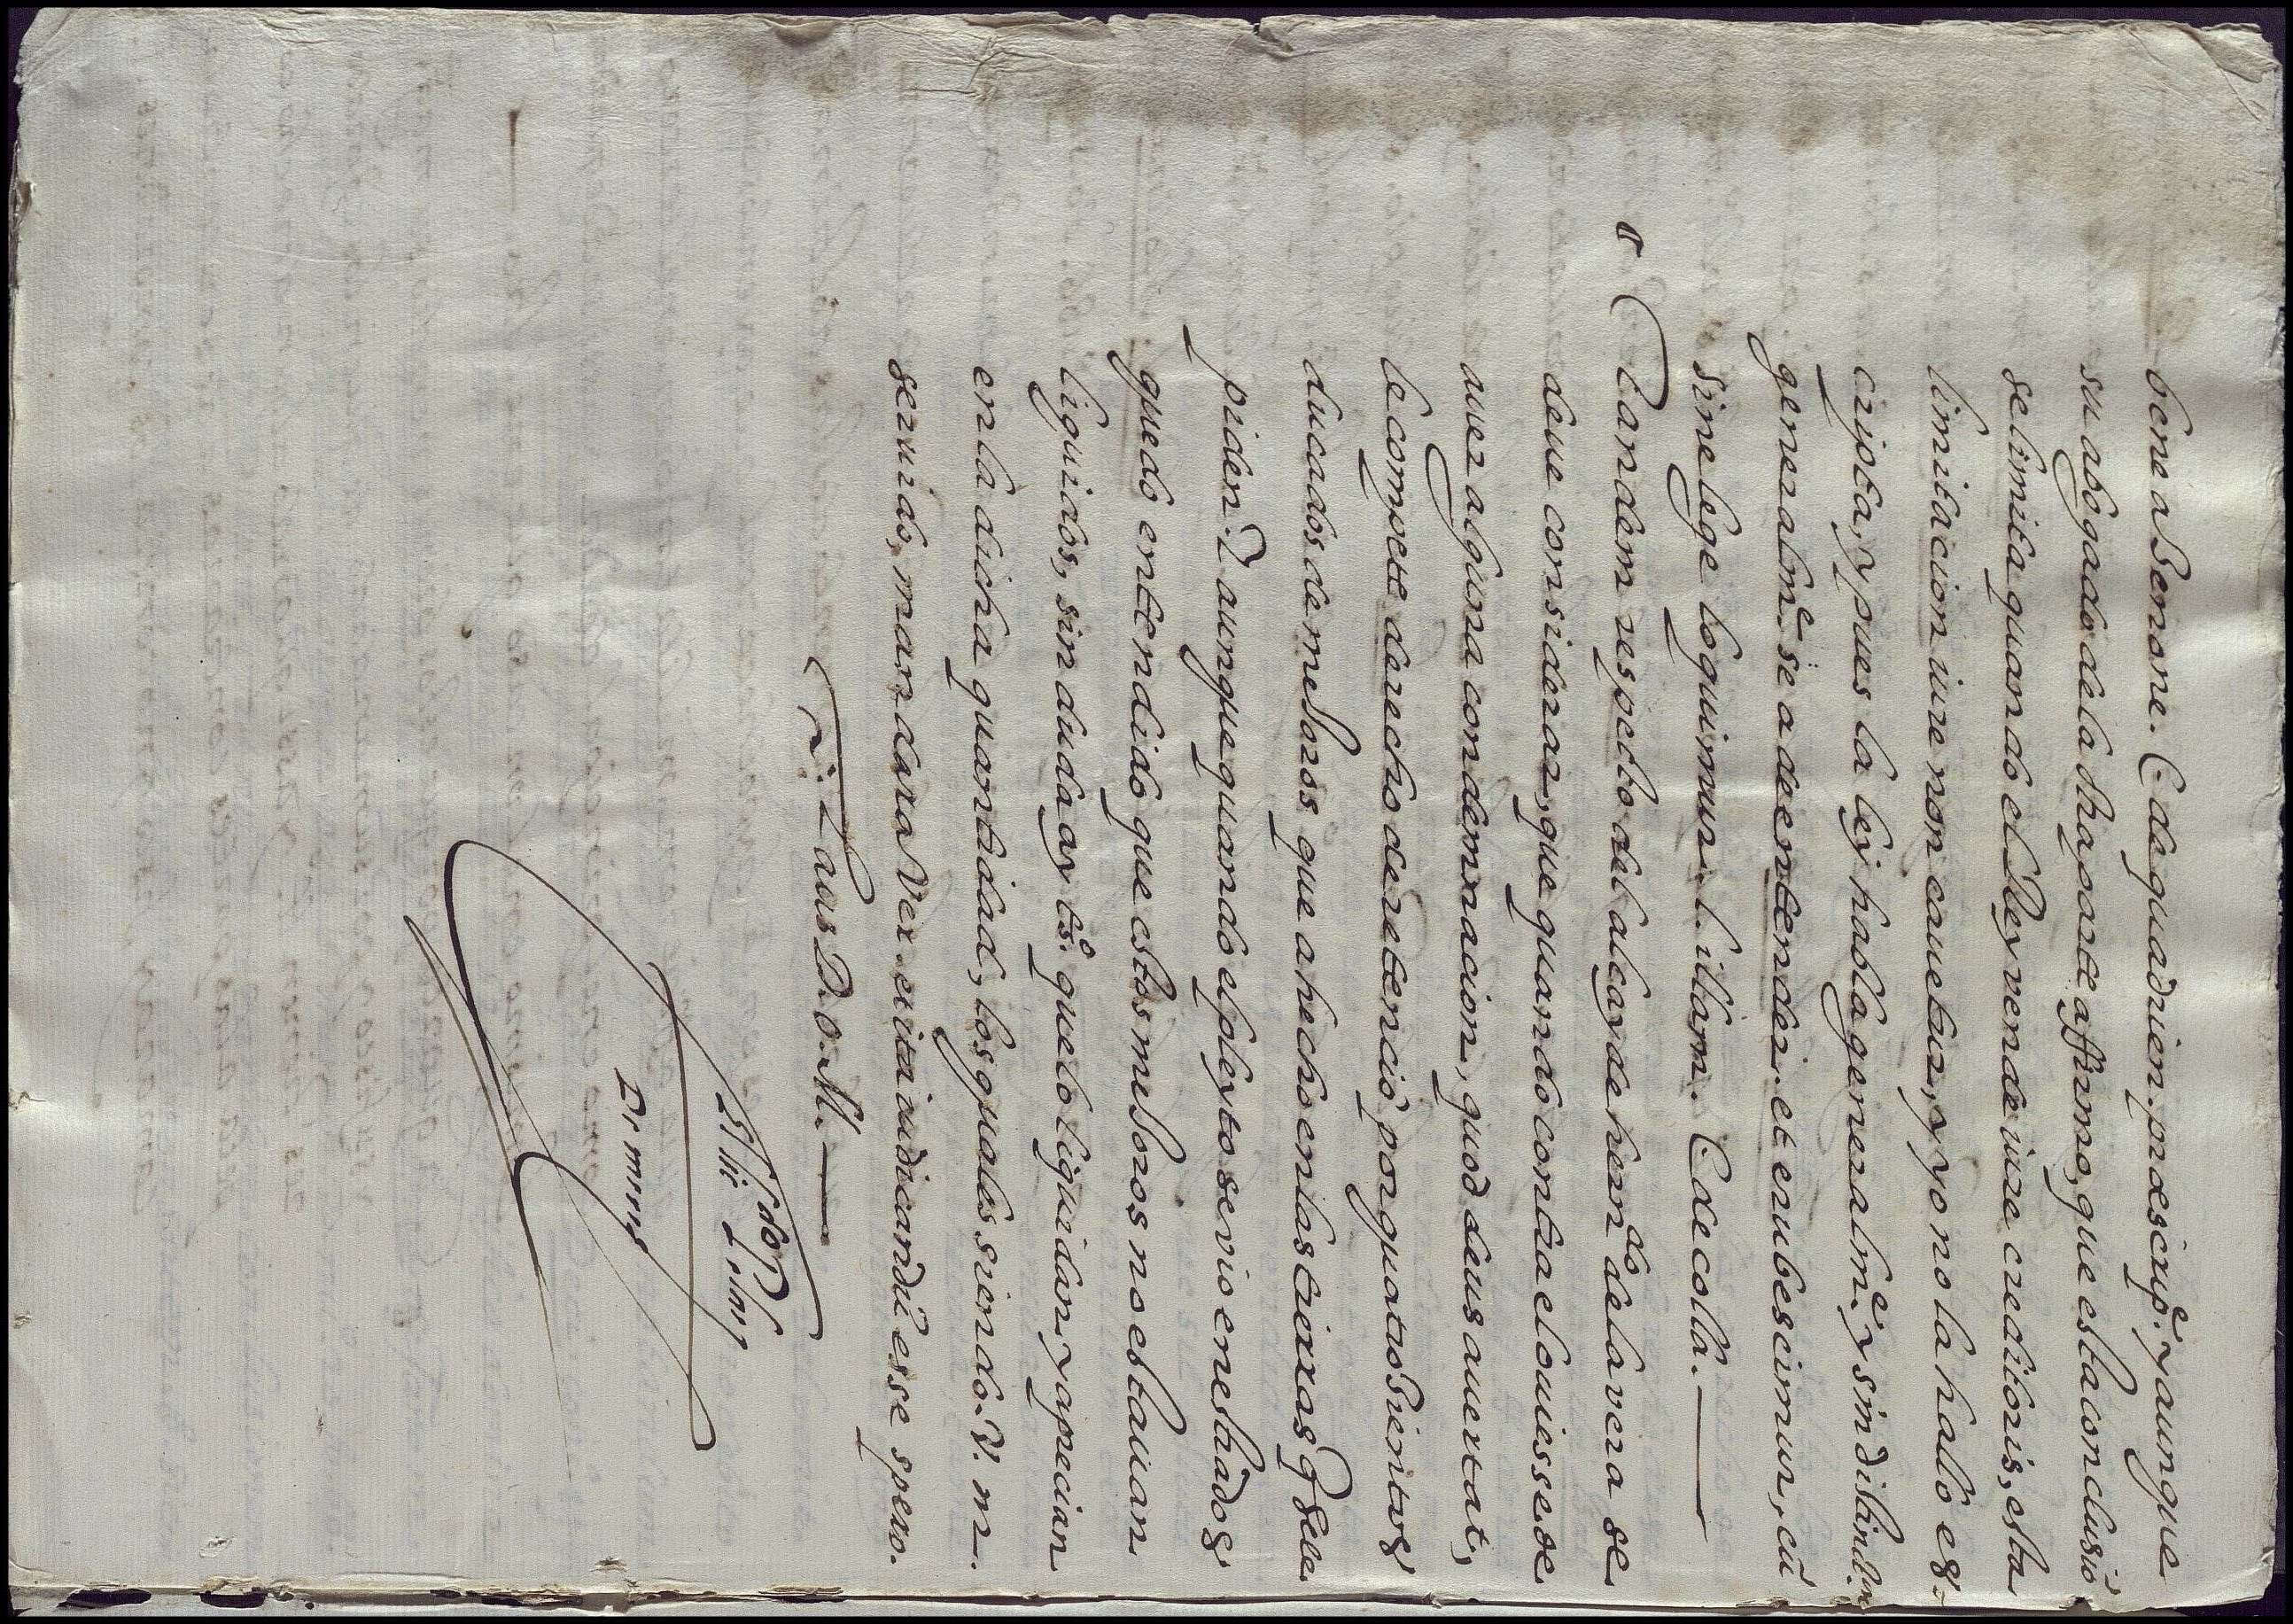 bene a Zenone. C. de quadrien. prescrip.e y aunque
su abogado dela dha parte affirmo, que esta conclusiõ
se limita quando el Rey vende iure creditoris, esta
limitacion iure non cauetur, y yo no la hallo es-
cripta, y pues la ley habla generalm.e y sin distinct.n
generalm.e se a de entender. et erubescimur, cũ
sine lege loquimur. l. illam. C. de colla.
Tandem respecto del alcayde hern.do de la vera se
deue considerar, que quando contra el ouiesse de
auer alguna condemnacion, quod deus auertat,
le compete derecho de retenciõ por quatrozientos
ducados de mejoros que a hecho en las tierras q̃ sele
piden. Y aunque quando el pleyto se vio en estrados
quedo entendido que estos mejoros no estauan
liquidos, sin duda ay ts.o que lo liquidan, y aprecian
en la dicha quantidad, los quales siendo. V. m.
seruido, mandara Ver. et ita iudicandũ esse spero.
Laus D. O. M.